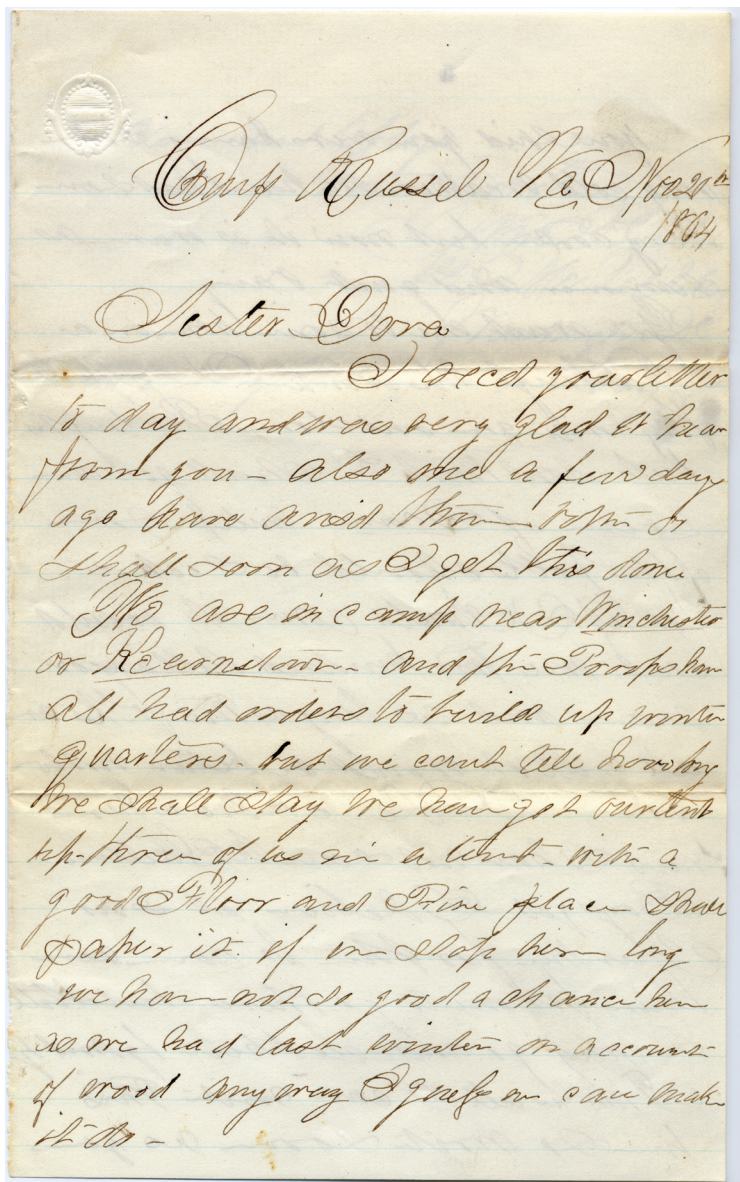 Camp Russel Va Nov 20th
1864
Sister Dora
I recd your letter
to day and was very glad to hear
from you - also one a few days
ago have
shall soon as I get this done
We are in camp near Winchester
or Kearnstown - and the Troops have
all had orders to build up winter
quarters - but we cant tell how long
we shall stay We have got our tent
up - three of us in a tent - with a
good Floor and Fire place shall
paper it if we stop here long
we have not so good a chance here
as we had last winter on account
of wood any way I guess we can make
it do -